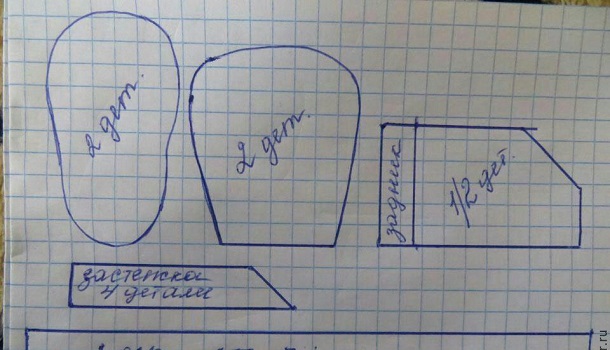 2 дет.
2 дет.
задник
1/2 дет.
застежка
4 детали